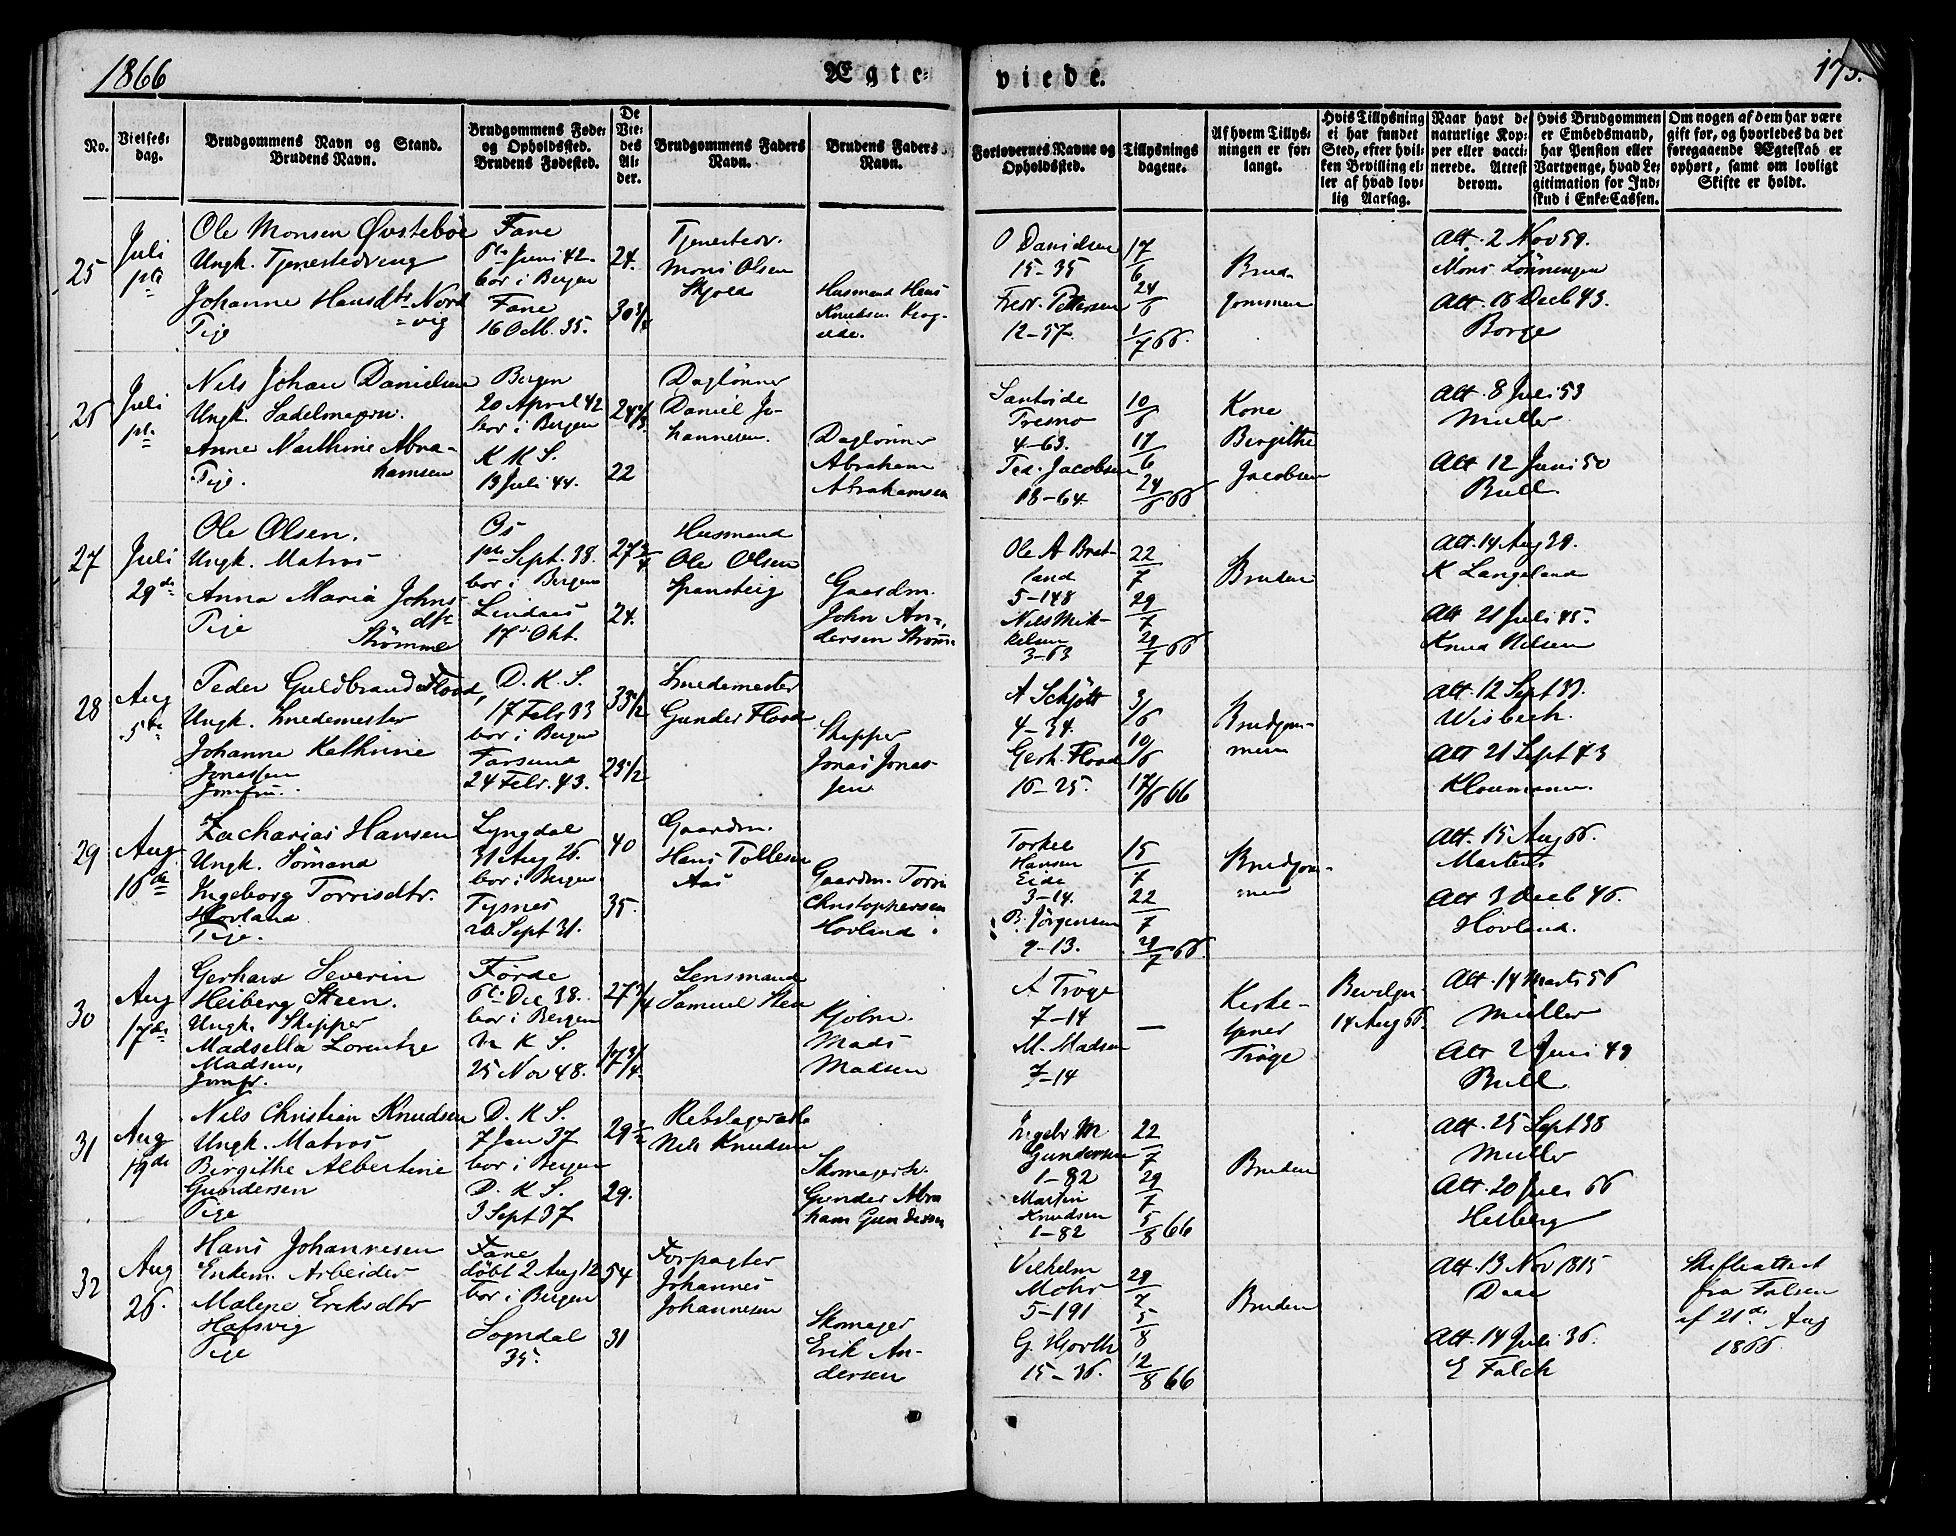 1866
Ægte-
viede.
173.
No.
Vielses-
dag.
Brudgommens Navn og Stand.
Brudens Navn.
Brudgommens Føde-
og Opholdssted.
Brudens Fødested.
De
Vie-
des
Al-
der.
Brudgommens Faders
Navn.
Brudens Faders
Navn.
Forlovernes Navne og
Opholdssted.
Tillysnings
dagene.
Af hvem Tillys-
ningen er for-
langt.
Hvis Tillysning
ei har fundet
Sted, efter hvil-
ken Bevilling el-
ler af hvad lov-
lig Aarsag.
Naar havt de
naturlige Kop-
per eller vacci-
nerede. Attest
derom.
Hvis Brudgommen
er Embedsmand,
har Pension eller
Vartpenge, hvad Le-
gitimation for Ind-
skud i Enke-Cassen.
Om nogen af dem har være
gift før, og hvorledes da det
foregaaende Ægteskab er
ophørt, samt om lovligt
Skifte er holdt.
25
Juli
1ste
Ole Monsen Øvstebøe
Ungk. Tjenestedreng
Johanne Hansdtr Nord
=vig
Pige
Fane
6te Juni 42
bor i Bergen
Fane
16 Octb. 35.
24.
30 3/4
Tjenestedr.
Mons Olsen
Skjold
Husmand Hans
Knudsen
O Danielsen
15-35
Fredr. Pettersen
12-57.
17/6
24/6
1/7 66.
Brud-
gommen
Att. 2 Nov 59.
Mons Lønningen
Att. 18 Decb 43.
Borge
26
Juli
1ste
Nils Johan Danielsen
Ungk. Sadelmagersv.
Anne Marthine Abra-
hamsen
Pige.
Bergen
20 April 42
bor i Bergen
K K S.
13 Juli 44.
24
22
Daglønner
Daniel Jo-
hannesen.
Daglønner
Abraham
Abrahamsen
4-63.
Jacobsen
18-64.
10/6
17/6
24/6 66
Kone
Birgithe
Jacobsen
Att. 8 Juli 53
Müller
Att 12 Juni 50
Bull
27
Juli
29de
Ole Olsen.
Ungk. Matros
Anna Maria Johns
dtr
Pige Strømme
Os
1ste Sept. 38.
bor i Bergen
Lindaas
17de Okt.
27 3/4
24.
Husmand
Ole Olsen
Gaardm.
John An-
dersen Strøm-
Ole A Bret-
land
5-148
Nils Mik-
kelsen
3-63
22/7
29/7
29/7 66
Bruden
Att. 14 Aug 39.
K Langeland
Att 21 Juli 45.
Knud Nilsen
28
Aug
5te
Peder Guldbrand Flood,
Ungk. Smedemester
Johanne Kathrine
Jonassen
Jomfru.
D. K. S.
17 Febr 33
bor i Bergen
Farsund
24 Febr. 43.
33 1/2
23 1/2
Smedemester
Gunder Flood
Skipper
Jonas Jonas-
sen
A Schjøtt
4-34.
Gerh. Flood
16-25.
3/6
10/6
17/6 66
Brudgom-
men
Att. 12 Sept 33.
Wisbech.
Att 21 Sept 43
Kloumann.
29
Aug
10de
Zacharias Hansen
Ungk. Sømand
Ingeborg Torrisdtr.
Hovland
Pige.
Lyngdal
31 Aug 26.
bor i Bergen
Tysnes
Sept 31.
40
35.
Gaardm.
Hans Tollesen
Aas
Gaardm. Torris
Christophersen
Hovland
Torkel
Hansen
Eide
3-14.
B. Jørgensen
9-13.
15/7
22/7
29/7 66.
Brudgom-
men
Att. 15 Aug 66.
Martens
Att 3 Decb 46.
Hovland.
30
Aug
17de
Gerhard Severin
Heiberg Steen.
Ungk. Skipper
Madsella Lorentze
Madsen,
Jomfr.
Førde
6te Dec 38.
bor i Bergen
N K S.
25 Nov 48.
27 3/4
17 3/4
Lensmand
Samuel Steen
Kjøbm.
Mads
Madsen
A Trøge
7-14
M. Madsen
7-14
—
Kirke-
tjener
Trøge
Bevilgn.
14 Aug 66.
Att. 14 Marts 56
Müller
Att 2 Juni 49
Bull
31
Aug
19de
Nils Christian Knudsen
Ungk. Matros
Birgithe Albertine
Gundersen
Pige
D. K S.
7 Jan 37
bor i Bergen
D. K S.
3 Sept 37
29 1/2
29.
Nils Knudsen
Skomagerm.
Gunder Abra
ham Gundersen
Ingebr M
Gundersen
1-82
Martin
Knudsen
1-82
22/7
29/7
5/8 66
Bruden
Att. 25 Sept 38
Müller
Att. 20 Juli 66
Heiberg
32
Aug
26.
Hans Johannesen
Enkem. Arbeider
Malene Eriksdtr
Hafsvig
Pige
Fane
døbt 2 Aug 12
bor i Bergen
Sogndal
35.
54
31
Forpagter
Johannes
Johannesen
Skomager
Erik An-
dersen
Vilhelm
Mohr
5-191
G. Hjorth
15-36.
29/7
5/8
12/8 66
Bruden
Att. 13 Nov 1815
Daae
Att. 14 Juli 36.
E Falch
Skifteattest
fra Falsen
af 21de Aug
1866